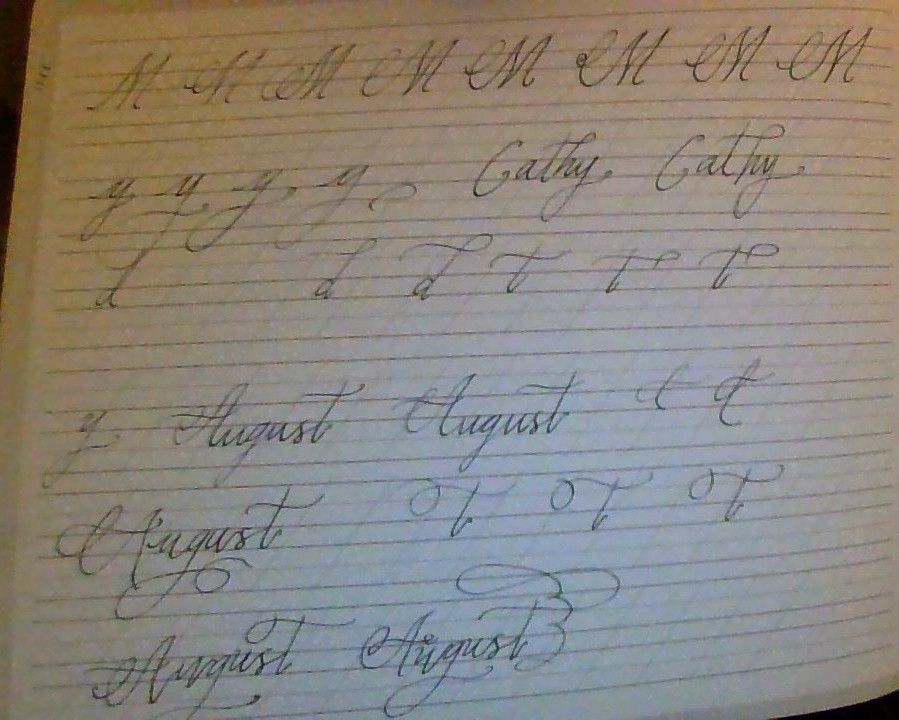 M M M M M M M M
y y y, y Cathy. Cathy.
d d d t t t
y August August t t
August T T T
August August